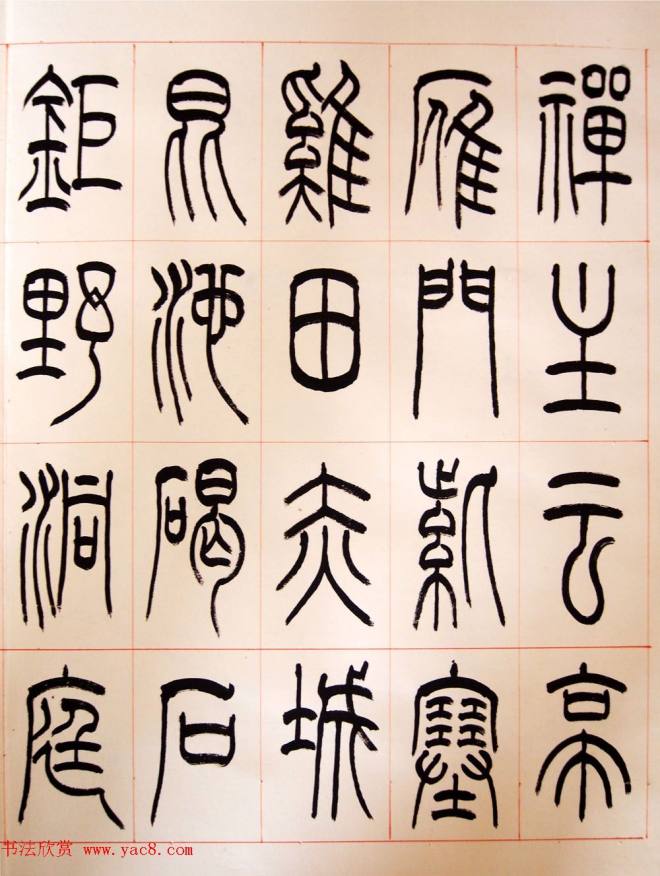 禪主云亭
雁門紫塞
雞田赤城
昆池碣石
鉅野洞庭
书法欣赏 www.yac8.com